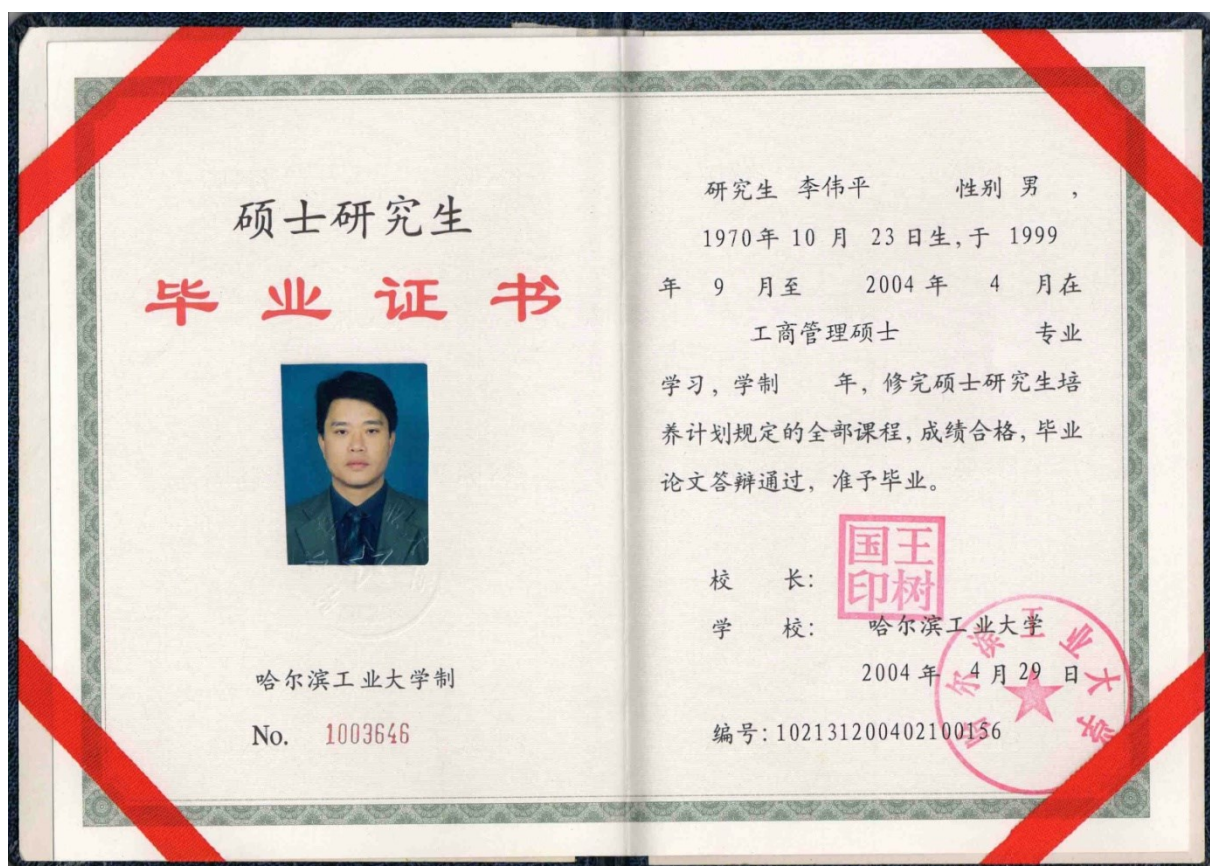 硕士研究生
毕业证书
哈尔滨工业大学制
No. 1003646
研究生 李伟平 性别 男 ,
1970年 10 月 23 日生,于 1999
年 9 月至 2004 年 4 月在
工商管理硕士 专业
学习, 学制 年, 修完硕士研究生培
养计划规定的全部课程, 成绩合格, 毕业
论文答辩通过, 准予毕业。
校 长: 王树国印
学 校: 哈尔滨工业大学
2004 年 4 月 29 日
编号: 102131200402100156
哈尔滨工业大学